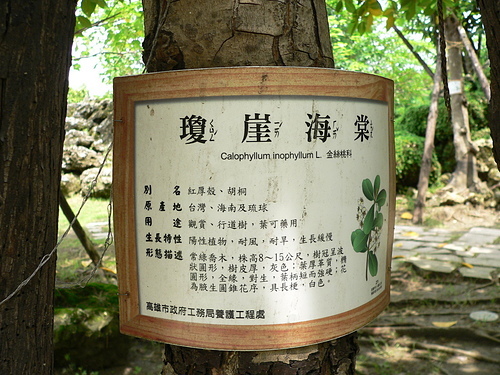 瓊崖海棠
Calophyllum inophyllum L. 金絲桃科
別名 紅厚殼、胡桐
原產地 台灣、海南及琉球
用途 觀賞，行道樹，葉可藥用
生長特性 陽性植物，耐風，耐旱，生長緩慢
形態描述 常綠喬木，株高8～15公尺，樹冠呈波
狀圓形，樹皮厚，灰色；葉厚革質，橢
圓形，全緣，對生，葉柄短而強硬；花
為腋生圓錐花序，具長梗，白色。
高雄市政府工務局養護工程處